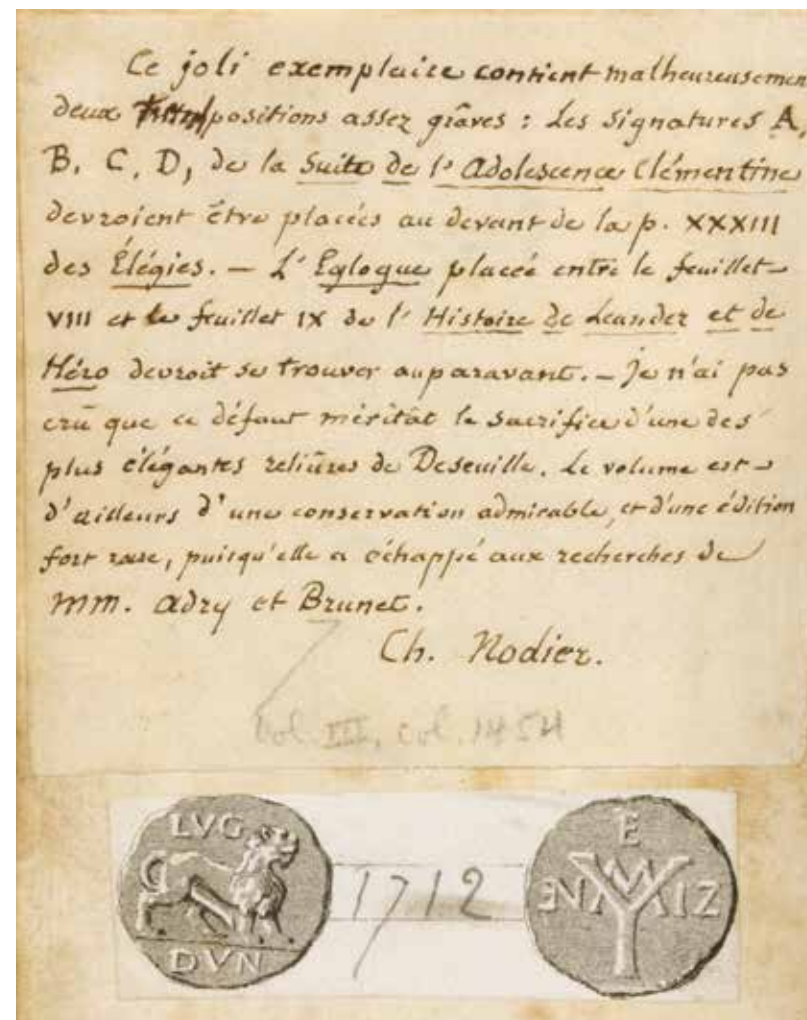 Ce joli exemplaire contient malheureusemen
deux transpositions assez grâves : Les signatures A,
B, C, D, de la Suite de l'Adolescence Clémentine
devroient être placées au devant de la p. XXXIII
des Élégies. — L'Eglogue placée entre le feuillet
VIII et le feuillet IX de l'Histoire de Leander et de
Héro devroit se trouver auparavant. — Je n'ai pas
crû que ce défaut méritât le sacrifice d'une des
plus élégantes reliûres de Deseuille. Le volume est
d'ailleurs d'une conservation admirable, et d'une édition
fort rare, puisqu'elle a échappé aux recherches de
MM. Adry et Brunet.
Ch. Nodier.
Vol. III, col. 1454
LVG
DVN
1712
E